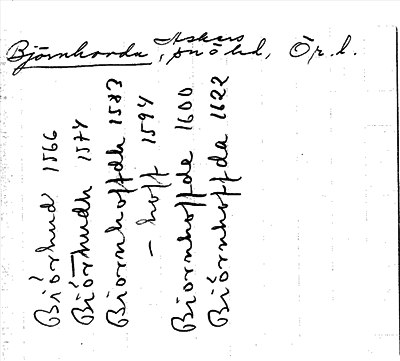 Björnhovda, Askers snöhd, Ör. l.
Biörhud 1566
Biörhudh 1574
Biornhoffdh 1583
– hoff 1594
Biornhoffde 1600
Biörnhoffda 1622